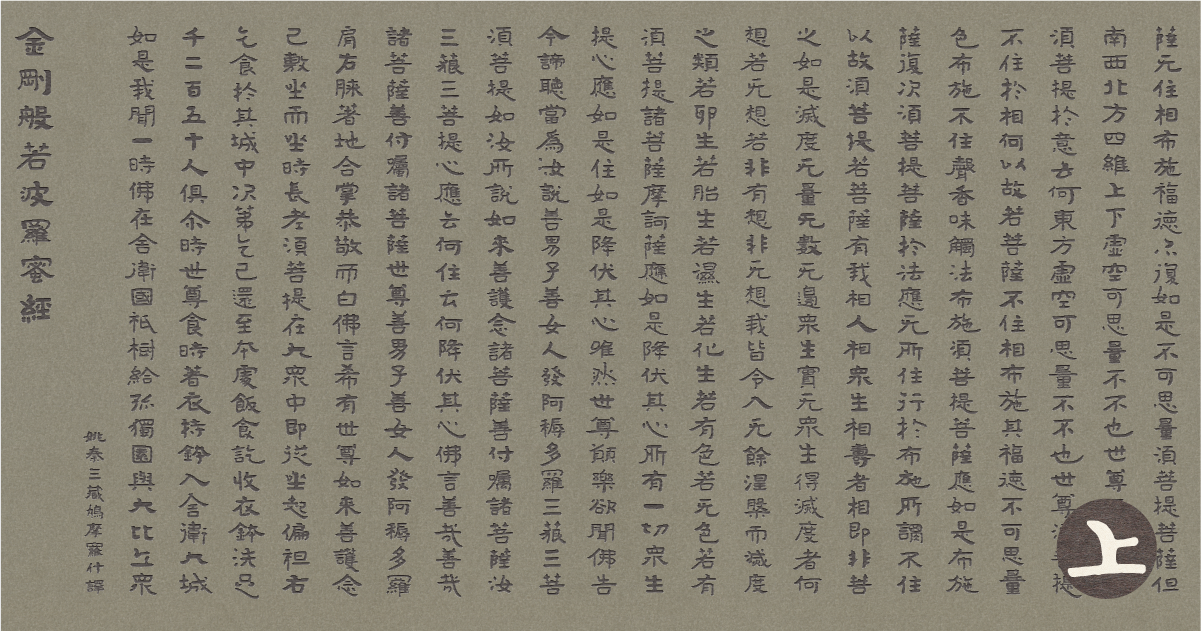 金剛般若波羅蜜經
姚秦三藏鳩摩羅什譯
如是我聞一時佛在舍衛國祇樹給孤獨園與大比丘衆
千二百五十人俱尒時世尊食時著衣持鉢入舍衛大城
乞食於其城中次第乞已還至本處飯食訖收衣鉢洗足
已敷坐而坐時長老須菩提在大衆中即從坐起偏袒右
肩右膝著地合掌恭敬而白佛言希有世尊如來善護念
諸菩薩善付囑諸菩薩世尊善男子善女人發阿耨多羅
三藐三菩提心應云何住云何降伏其心佛言善哉善哉
須菩提如汝所說如來善護念諸菩薩善付囑諸菩薩汝
今諦聽當為汝說善男子善女人發阿耨多羅三藐三菩
提心應如是住如是降伏其心唯然世尊願樂欲聞佛告
須菩提諸菩薩摩訶薩應如是降伏其心所有一切衆生
之類若卵生若胎生若濕生若化生若有色若无色若有
想若无想若非有想非无想我皆令入无餘涅槃而滅度
之如是滅度无量无數无邊衆生實无衆生得滅度者何
以故須菩提若菩薩有我相人相衆生相壽者相即非菩
薩復次須菩提菩薩於法應无所住行於布施所謂不住
色布施不住聲香味觸法布施須菩提菩薩應如是布施
不住於相何以故若菩薩不住相布施其福德不可思量
須菩提於意云何東方虛空可思量不不也世尊須提
南西北方四維上下虛空可思量不不也世尊
薩无住相布施福德亦復如是不可思量須菩提菩薩但
上